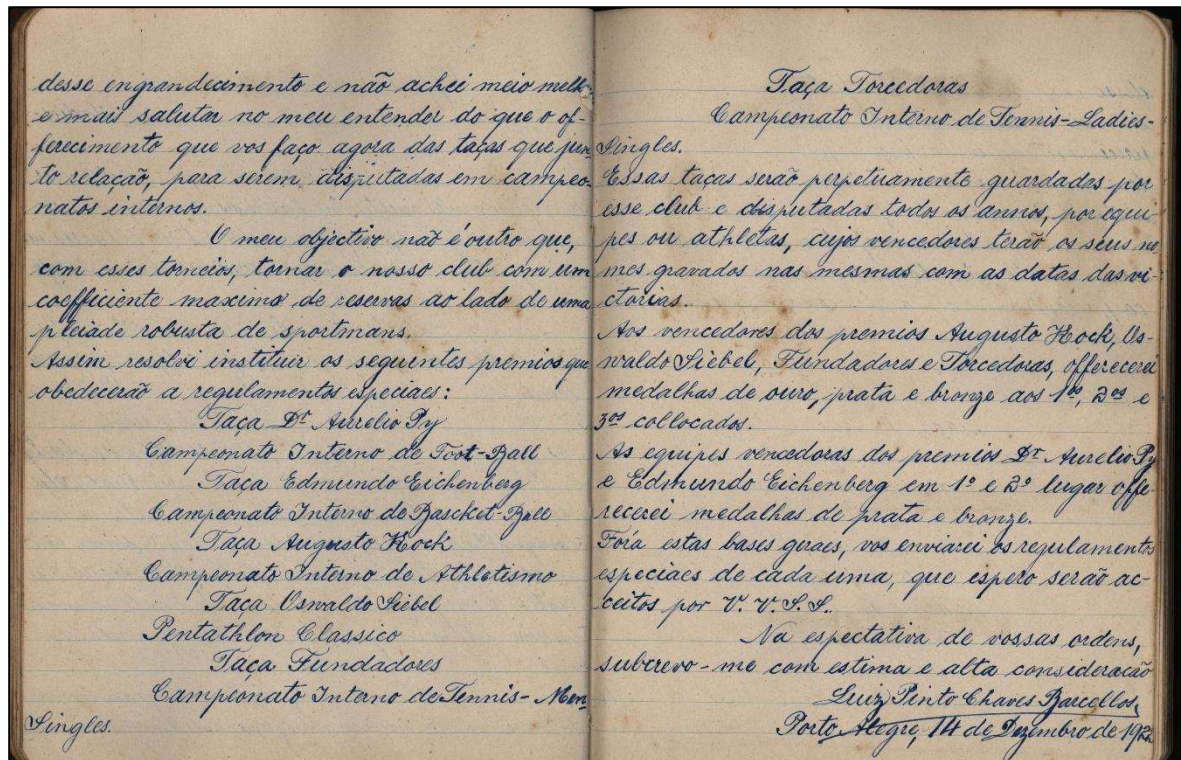 desse engrandecimento e não achei meio melhor
e mais salutar no meu entender do que o of-
ferecimento que vos faço agora das taças que jun-
to relação, para serem disputadas em campeo-
natos internos.
O meu objectivo não é outro que,
com esses torneios, tornar o nosso club com um
coefficiente maximo de reservas ao lado de uma
pleiade robusta de sportmans.
Assim resolvi instituir os seguintes premios que
obedecerão a regulamentos especiaes:
Taça Dr. Aurelio Py
Campeonato Interno de Foot-Ball
Taça Edmundo Eichenberg
Campeonato Interno de Bascket-Ball
Taça Augusto Kock
Campeonato Interno de Athletismo
Taça Oswaldo Siebel
Pentathlon Classico
Taça Fundadores
Campeonato Interno de Tennis-Men-
Singles.
Taça Torcedoras
Campeonato Interno de Tennis-Ladies-
Singles.
Essas taças serão perpetuamente guardadas por
esse club e disputadas todos os annos, por equi-
pes ou athletas, cujos vencedores terão os seus no
mes gravados nas mesmas com as datas das vi-
ctorias.
Aos vencedores dos premios Augusto Kock, Os-
waldo Siebel, Fundadores e Torcedoras, offerecerei
medalhas de ouro, prata e bronze aos 1os, 2os e
3os collocados.
As equipes vencedoras dos premios Dr. Aurelio Py
e Edmundo Eichenberg em 1º e 2º lugar offe-
recerei medalhas de prata e bronze.
Fóra estas bases geraes, vos enviarei os regulamentos
especiaes de cada uma, que espero serão ac-
ceitos por V. V. S. S.
Na espectativa de vossas ordens,
subcrevo-me com estima e alta consideração
Luiz Pinto Chaves Barcellos,
Porto Alegre, 14 de Dezembro de